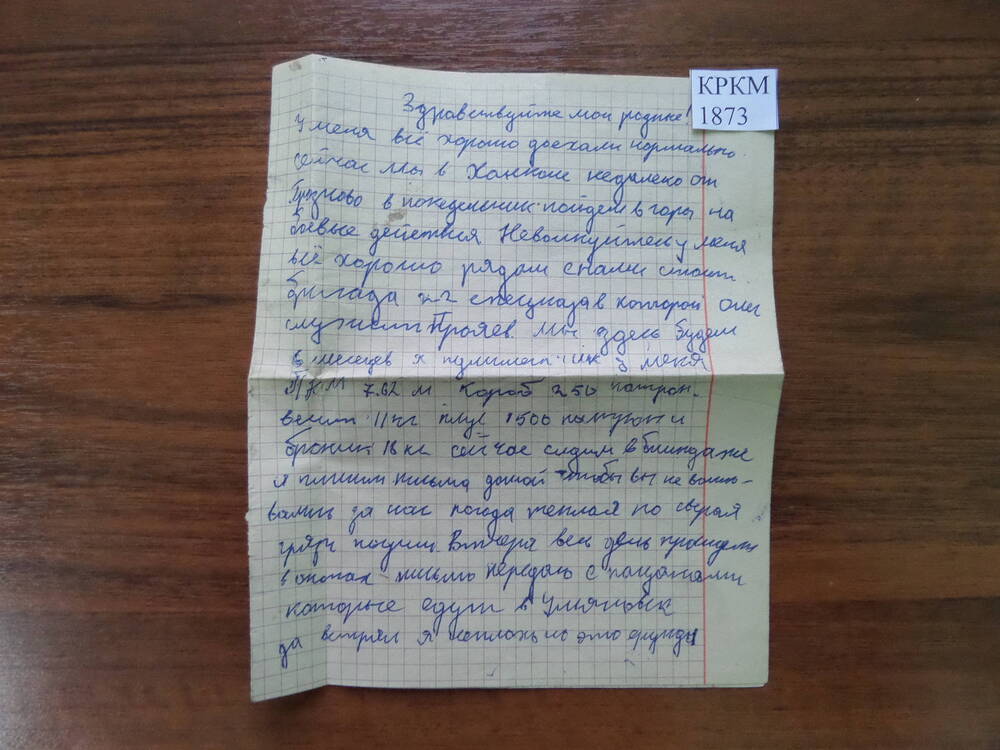 КРКМ
1873
Здравствуйте мои родные!
У меня всё хорошо доехали нормально.
сейчас мы в Ханкале недалеко от
Грозново в понедельник пойдем в горы на
боевые действия Неволнуйтесь у меня
всё хорошо рядом с нами стоит
бригада спецназа в которой Олег
служил Мы здесь будем
6 месецев я пулеметчик у меня
ПКМ 7.62 м Короб 250 патрон.
весит 11кг плус 1500 патрон и
броник 18 кг сейчас сидим в блиндаже
и пишим письма домой чтобы вы не волно-
вались за нас погода теплая но сырая
грязи Вчера весь день просидели
в окопах письмо передаю с пацанами
которые едут в Уляновск
да я но это ерунда